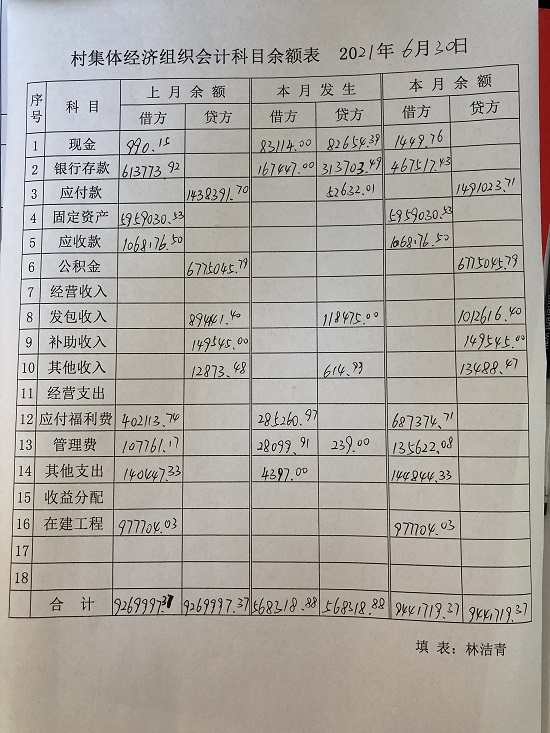 村集体经济组织会计科目余额表 2021年6月30日
序号 科目 上月余额 本月发生 本月余额
借方 贷方 借方 贷方 借方 贷方
1 现金 990.15 83114.00 82654.39 1449.76
2 银行存款 613773.92 167447.00 313703.49 467517.43
3 应付款 1438391.70 52632.01 1491023.71
4 固定资产 5959030.53 5959030.53
5 应收款 1068176.50 1068176.50
6 公积金 6775045.79 6775045.79
7 经营收入
8 发包收入 894141.40 118475.00 1012616.40
9 补助收入 149545.00 149545.00
10 其他收入 12873.48 614.99 13488.47
11 经营支出
12 应付福利费 402113.74 285260.97 687374.71
13 管理费 107761.17 28099.91 239.00 135622.08
14 其他支出 140447.33 4397.00 144844.33
15 收益分配
16 在建工程 977704.03 977704.03
17
18
合计 9269997.37 9269997.37 568318.88 568318.88 9441719.37 9441719.37
填表：林洁青